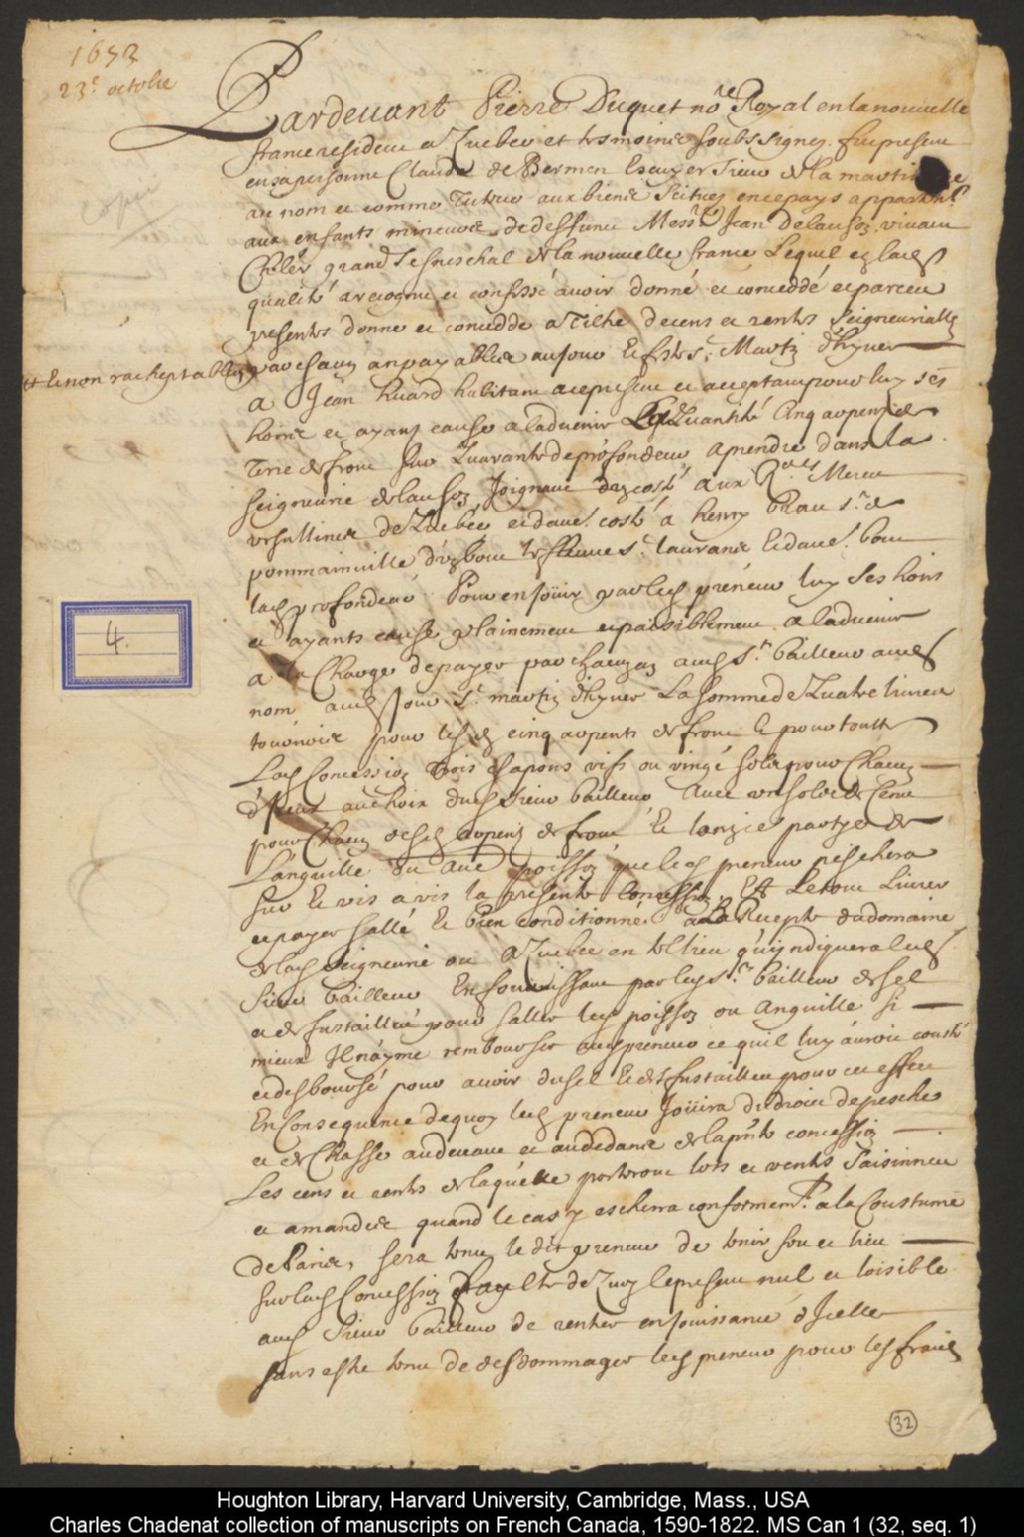 1653
23e octobre
Pardevant Pierre Duquet nore Royal en la nouvelle
france resident a Quebec et tesmoins soubs signez fut present
en sa personne Claude de Bermen Escuyer Sieur de la martiniere
au nom et comme Tuteur aux biens scituez en ce pays appartent
aux enfants mineurs de deffunct Messre Jean Delauson vivant
Chler grand seneschal de la nouvelle france Lequel esd
qualité a recognu et confessé avoir donné et conceddé et par ces
presentes donne et concedde a Tiltre de cens et rentes seigneurialles
et non racheptables
par chacun an payables au jour et feste St Martin d'hyver
a Jean huard habitant a ce present et acceptant pour luy ses
hoirs et ayans cause a ladvenir La quantité Cinq arpens de
Terre de front sur quarante de profondeur a prendre dans la
seigneurie de lauson Joignant d'un costé aux Rdes Meres
ursullines de Quebec et d'aut. costé a henry sr de
pommainville d'un bout le fleuve St laurans et d'aut. bout
lad profondeur Pour en jouir par led preneur luy ses hoirs
et ayants cause plainement et paisiblement a ladvenir
a la Charge de payer par chacun an aud Sr bailleur aud
nom aud jour St martin d'hyver La somme de Quatre livres
tournois pour lesd cinq arpents de front et pour toutte
Lad Concession trois chapons vifs ou vingt sols pour Chacun
d'iceux au choix dud Sieur bailleur Avec un sol de Cens
pour Chacun desd arpens de front Et l'onzie partye de
L'anguille ou aue poisson que led preneur peschera
sur et vis a vis la presente Concession, Et Le tout Livrer
et payer sallé et bien conditionné a La Recepte du domaine
de lad seigneurie ou a Quebec en tel lieu qu'indiquera led
Sieur bailleur En fournissant par led Sr bailleur de sel
et de fustailles pour saller led poisson ou anguille si
mieux Il n'ayme rembourser aud preneur ce qu'il luy auroit cousté
et desboursé pour avoir du sel et des fustailles pour cet effect
En Consequence de quoy led preneur Jouira du droict de pesche
et de Chasse au devant et au dedans de la pnte concession
Les cens et rentes de laquelle porteront lots et ventes saisinnes
et amandes quand le cas y escherra conformemt a la Coustume
de Paris, sera tenu le dit preneur de tenir feu et lieu
sur lad Concession faulte de quoy le present nul et loisible
aud Sieur bailleur de rentrer en jouissance d'Icelle
sans estre tenu de desdommager led preneur pour les fraiz
4.
32
Houghton Library, Harvard University, Cambridge, Mass., USA
Charles Chadenat collection of manuscripts on French Canada, 1590-1822. MS Can 1 (32, seq. 1)